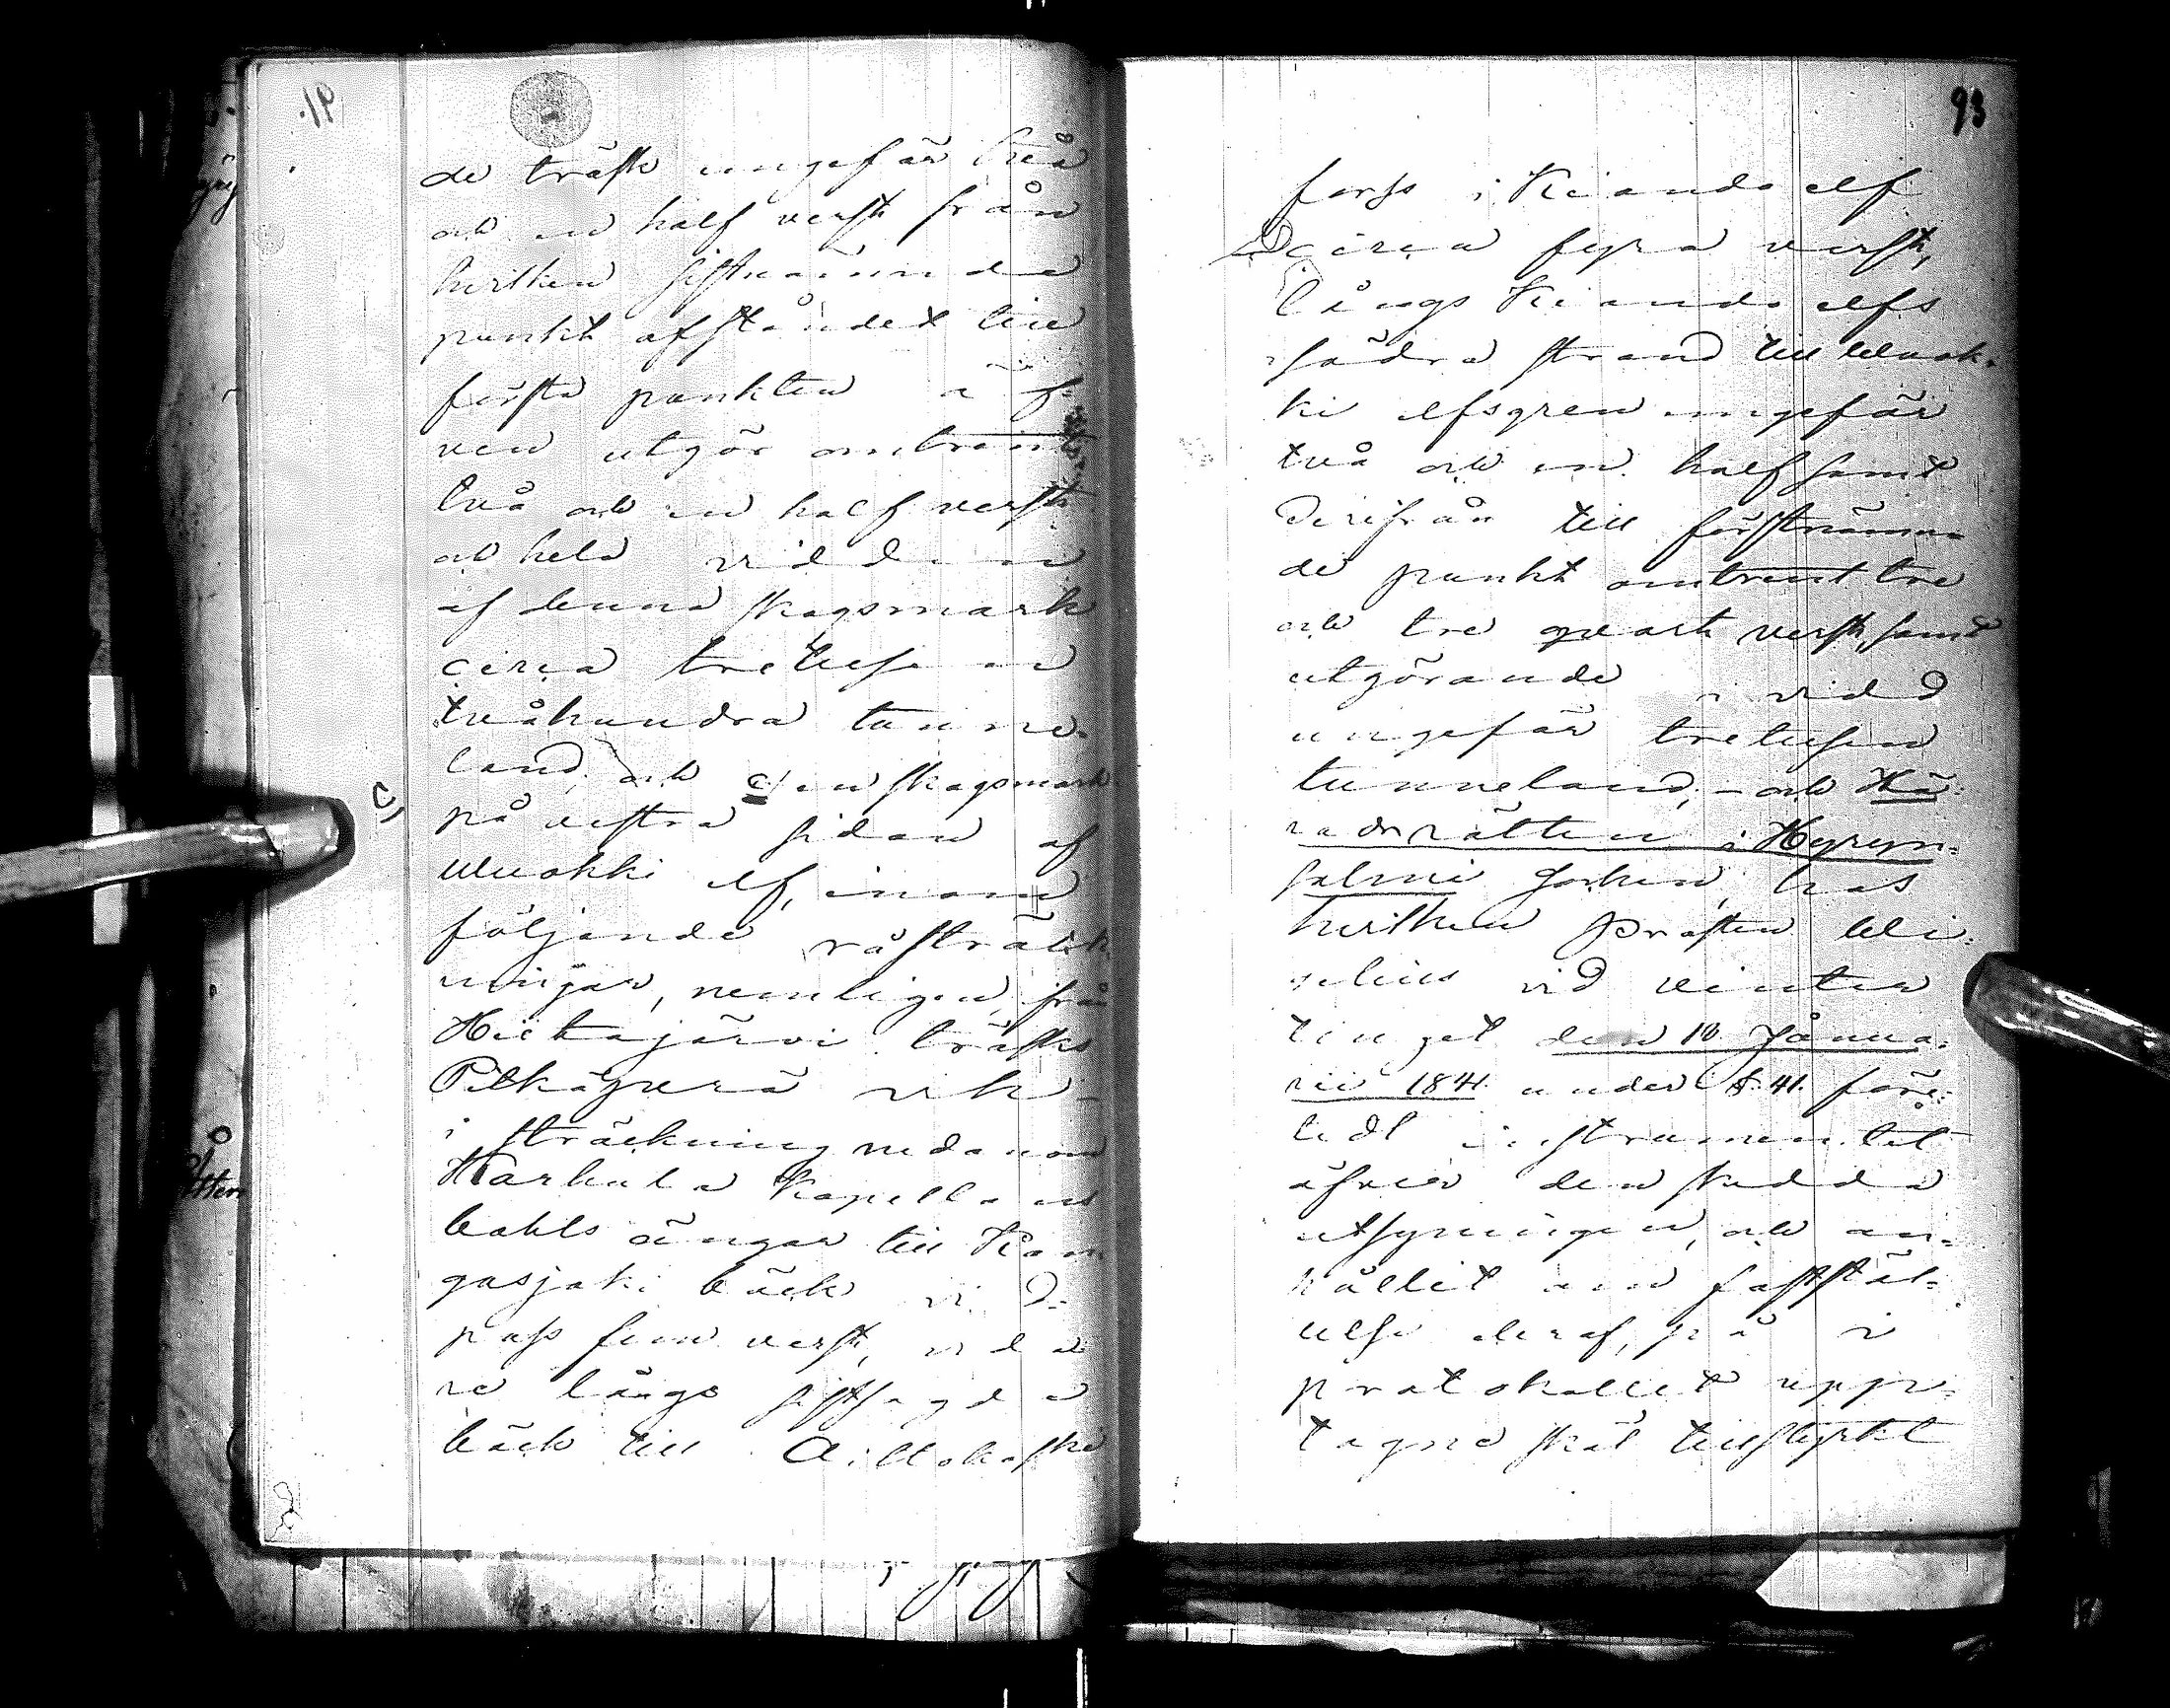 de träsk ungefär två
och en half verst från
hvilken sistnämnde
punkt afståndet till
första punkten äf-
ven utgör omtrent
två och en half verst
och hela vidden
af denna skogsmark
circa tretusen
tvåhundra tunne-
land, och c/ en skogsmark
på vestra sidan af
Wuokki elf, inom
följande råsträck
ningar, nemligen från
Hietajärvi träsks
Pitkäperä vik
i sträckning nedanom
Karhula Kapellans
bohls ängar till Kan
gasjoki bäck vid-
pass fem verst, vida
re längs sistsagde
bäck till Aittokoski
93
forss i Kiando elf
circa fyra verst,
längs Kiando elfs
södra strand till Wuok-
ki elfsgren ungefär
två och en half samt
derifrån till förstnämn-
de punkt omtrent tre
och tre qvart verst, samt
utgörande i vidd
ungefär tretusen
tunneland; – och Hä-
radsrätten i Hyryn-
salmi Socken, hos
hvilken Prosten Wi-
vid vinter
tinget den 10 Janua-
rii 1841 under § 41. före-
tedt instrumentet
öfver den skedda
utsyningen, och an-
hållit om faststäl-
lelse deraf, på i
protokollet upp-
tagne skäl tillstyrkt